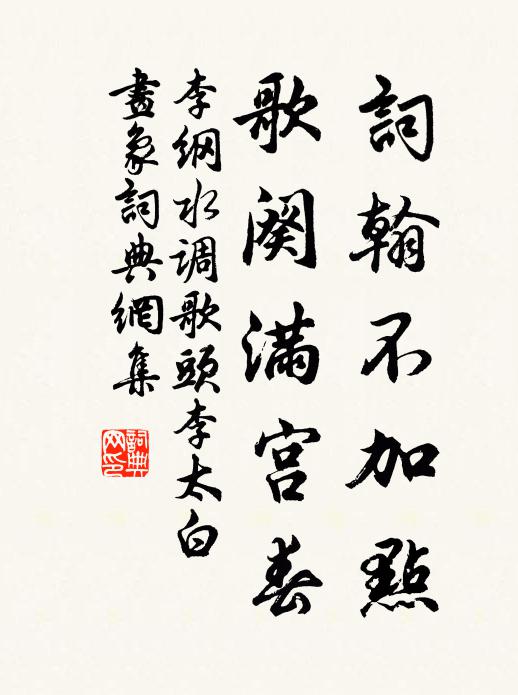 詞翰不加點
歌闋滿宮春
李綱水调歌頭李太白
畫象詞典網集
詞典网印